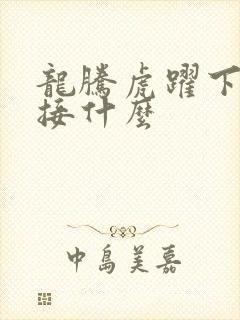 龍騰虎躍下
接什麼
中島美嘉